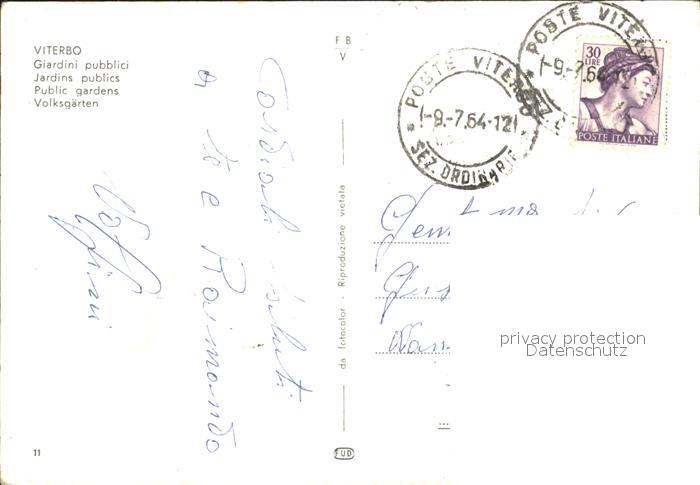 VITERBO
Giardini pubblici
Jardins publics
Public gardens
Volksgärten
F B
V
POSTE VITERBO
-9.-7.64-12
SEZ. ORDINARIE
POSTE VITERBO
-9.-7.64
30
LIRE
POSTE ITALIANE
Cordiali saluti
a te e Raimondo
da fotocolor - Riproduzione vietata
privacy protection
Datenschutz
11
FUD